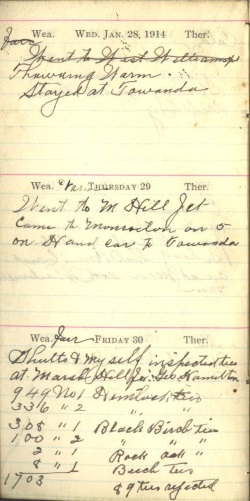 Wea. WED. JAN. 28, 1914 Ther.
Fair
Went to West Williamspt
Thawning Warm
Stayed at Towanda
Wea. THURSDAY 29 Ther.
Went to M Hill Jct
Came to Monroeton on 5
on Hand car to Towanda
Wea. Fair FRIDAY 30 Ther.
Shultz & my self inspected ties
at Marsh Hill for Geo Hamilton
949 No 1 Hemlock ties
336 " 2 " "
308 " 1 Black Birch ties
100 " 2 " " "
2 " 1 Rock oak "
8 " 1 Beech ties
1703 89 ties rejected